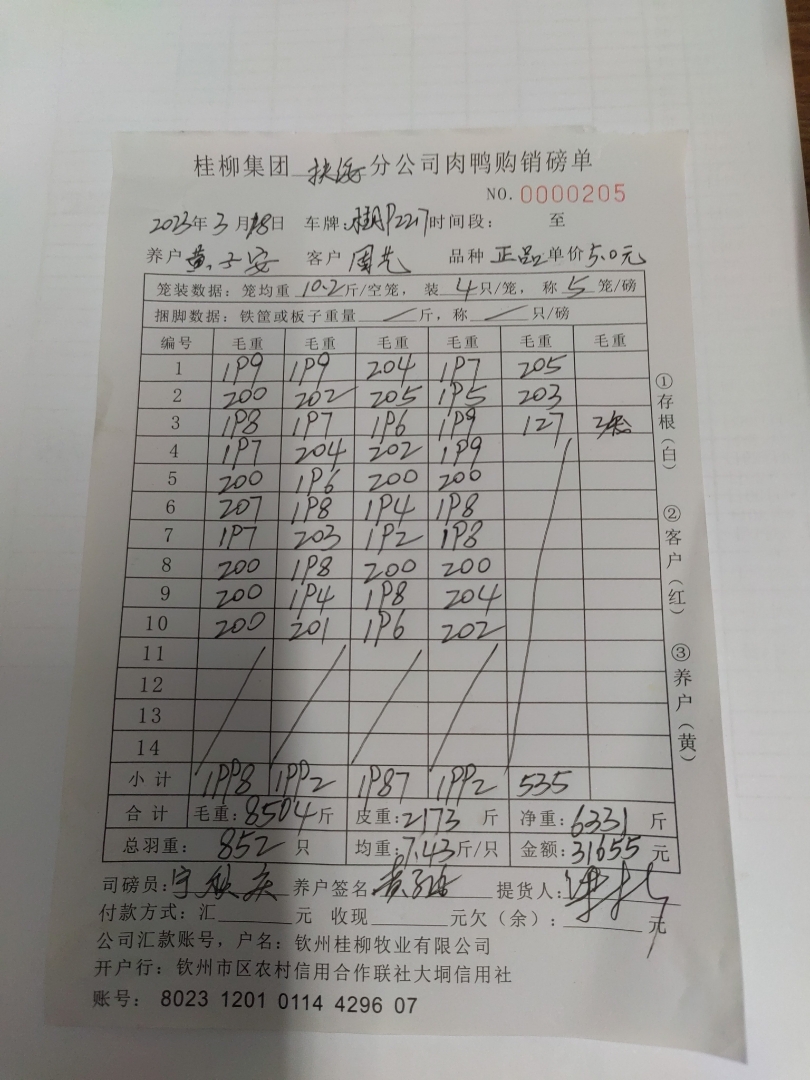 桂柳集团 扶海 分公司肉鸭购销磅单
NO. 0000205
2023年 3 月 18日 车牌: 2217 时间段: 至
养户 黄子安 客户 周先 品种 正品 单价 5.0元
笼装数据: 笼均重 10.2 斤/空笼, 装 4 只/笼, 称 5 笼/磅
捆脚数据: 铁筐或板子重量 / 斤, 称 / 只/磅
编号 毛重 毛重 毛重 毛重 毛重 毛重
1 199 199 204 197 205
2 200 202 205 195 203
3 198 197 196 199 127
4 197 204 202 199
5 200 196 200 200
6 207 198 194 198
7 197 203 192 198
8 200 198 200 200
9 200 194 198 204
10 200 201 196 202
11
12
13
14
小计 1998 1992 1987 1992 535
合计 毛重: 8504 斤 皮重: 2173 斤 净重: 6331 斤
总羽重: 852 只 均重: 7.43 斤/只 金额: 31655 元
司磅员: 养户签名: 提货人:
付款方式: 汇 元 收现 元欠(余): 元
公司汇款账号, 户名: 钦州桂柳牧业有限公司
开户行: 钦州市区农村信用合作联社大垌信用社
账号: 8023 1201 0114 4296 07
①存根(白) ②客户(红) ③养户(黄)